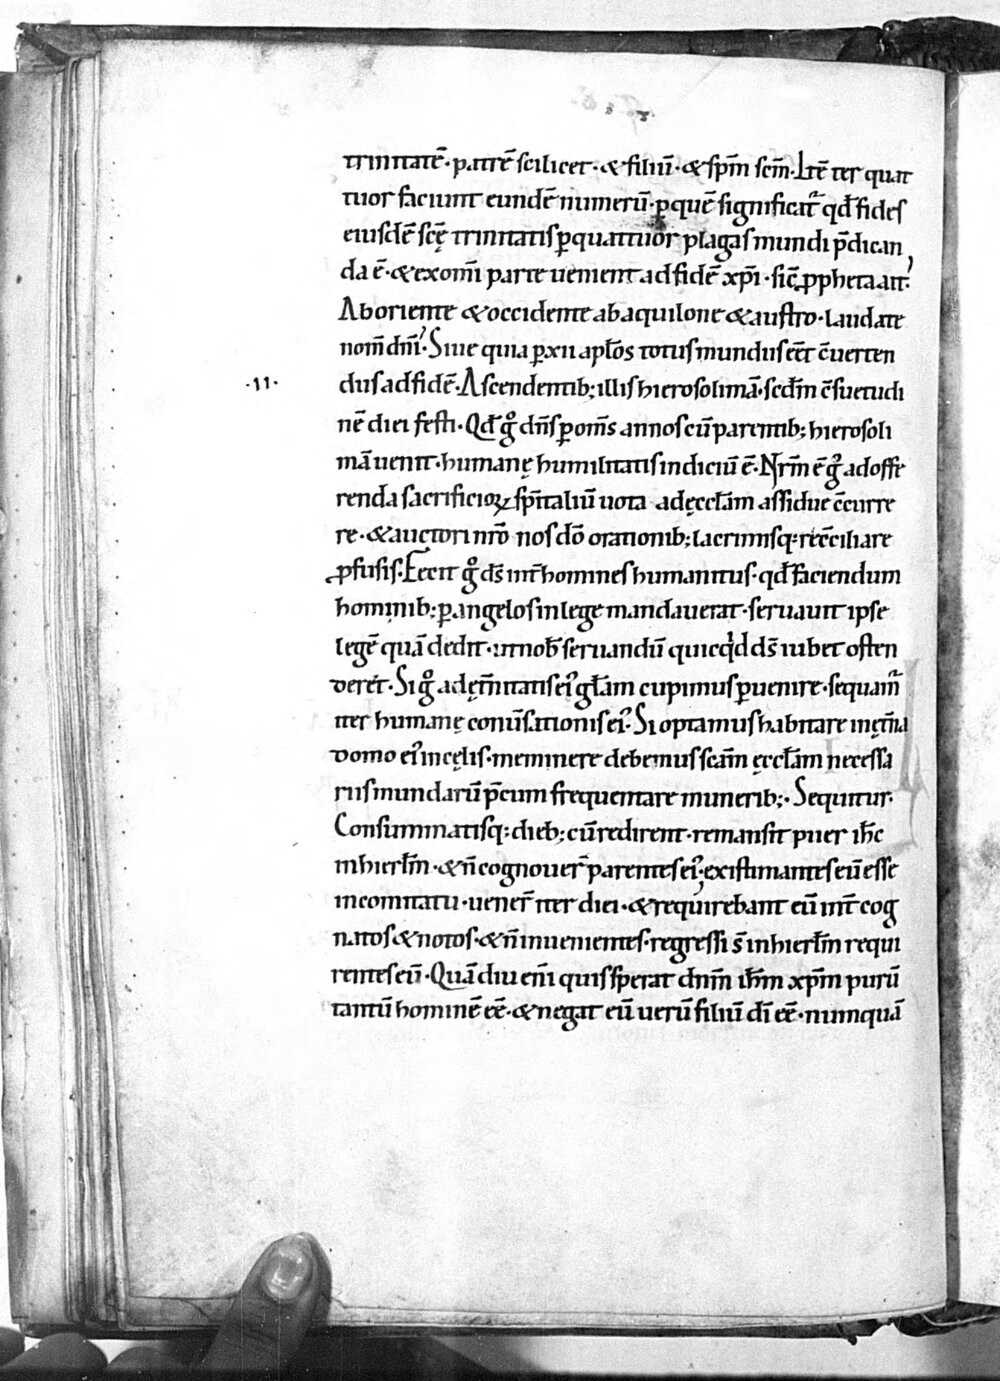 trinitatē· patrē scilicet· & filiū· & spm̄ scm̄· Itē ter quat
tuor faciunt eundē numerū· ꝑ quē significat᷑ qđ fides
eiusdē scę̄ trinitatis ꝑ quattuor plagas mundi p̄dican
da ē· & ex om̄i parte uenient ad fidē xp̄i· sic̄ ꝓpheta ait·
Ab oriente & occidente ab aquilone & austro· laudate
nom̄ dn̄i· Siue quia ꝑ xii apłos totus mundus eēt c̄uerten
·11·
dus ad fidē· Ascendentib; illis hierosolimā· scđm c̄suetudi
nē diei festi· Qđ gͦ dn̄s ꝑ om̄s annos cū parentib; hierosoli
mā uenit· humanę humilitatis indiciū ē· Nr̄m ē gͦ ad offe
renda sacrificioꝝ sp̄italiū uota ad ęccłam assidue c̄curre
re· & auctori nr̄o nos dō orationib; lacrimisq; rec̄ciliare
ꝓfusis· Fecit gͦ ds̄ int̄ homines humanitus· qđ faciendum
hominib; ꝑ angelos in lege mandauerat· seruauit ipse
legē quā dedit· ut nob̄ seruandū quicqͥd ds̄ iubet osten
deret· Si gͦ ad ęt̄nitatis ei᷒ głam cupimus ꝑuenire· sequam᷑
iter humanę conuer̄sationis ei᷒· Si optamus habitare in ęt̄na
domo ei᷒ in cęlis· meminere debemus scām ęccłam necessa
riis mundarū p̄cum frequentare munerib;· Sequitur·
Consummatisq; dieb; cū redirent· remansit puer ih̄c
in hierłm· & n̄ cognouer̄ parentes ei᷒· existimantes eū esse
in comitatu· uener̄ iter diei· & requirebant eū int̄ cog
natos & notos· & n̄ inuenientes· regressi s̄ in hierłm requi
rentes eū· Quā diu eni̅ quis sperat dn̄m ih̄m xp̄m purū
tantū hominē eē· & negat eū uerū filiū dī eē· nunquā